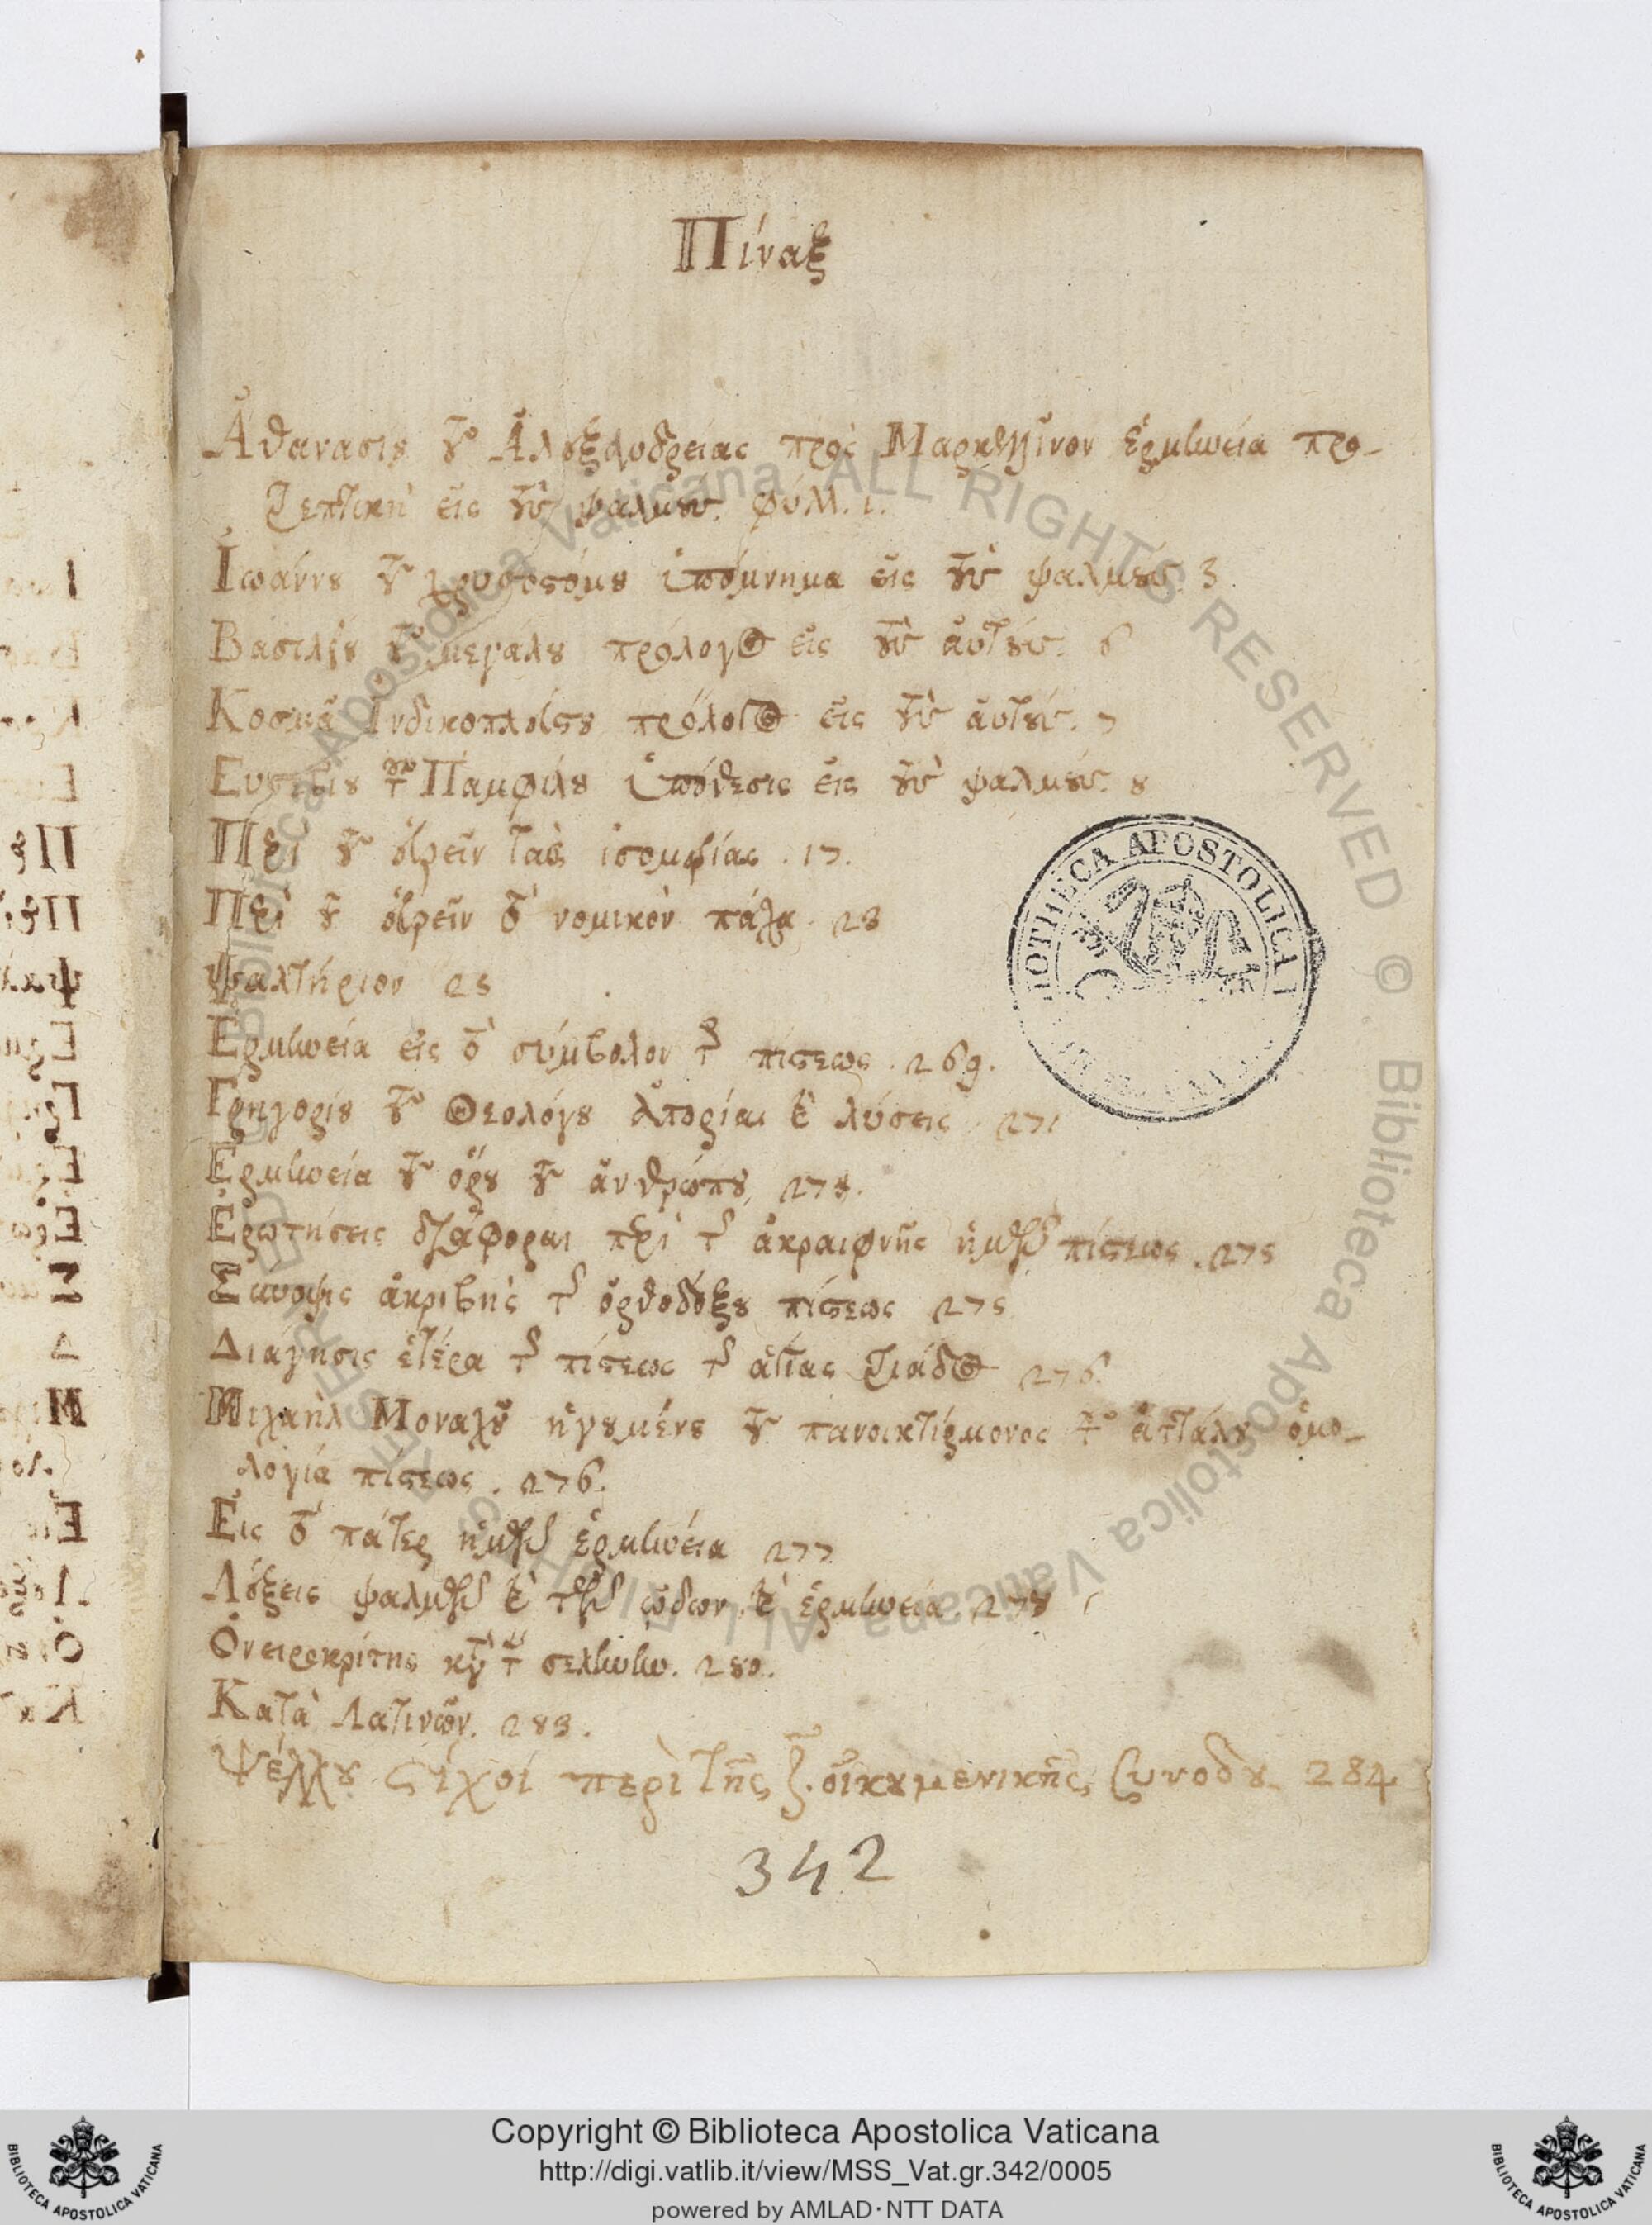 Πίναξ
Ἀθανασίου τοῦ Ἀλεξανδρείας πρὸς Μαρκελλῖνον ἑρμηνεία προ-
τρεπτικὴ εἰς τοὺς ψαλμούς. φύλλ. 1.
Ἰωάννου τοῦ χρυσοστόμου ὑπόμνημα εἰς τοὺς ψαλμούς. 3
Βασιλείου τοῦ μεγάλου πρόλογος εἰς τοὺς αὐτούς. 6
Κοσμᾶ Ἰνδικοπλεύστου πρόλογος εἰς τοὺς αὐτούς. 7
Ευσεβίου τοῦ Παμφίλου ὑπόθεσις εἰς τοὺς ψαλμούς. 8
Περὶ τοῦ εὑρεῖν τὰς 17.
Περὶ τοῦ εὑρεῖν τὸ νομικὸν πάσχα. 23
Ψαλτήριον 25
Ἑρμηνεία εἰς τὸ σύμβολον τῆς πίστεως. 269.
Γρηγορίου τοῦ Θεολόγου ἀπορίαι καὶ λύσεις. 271
Ἑρμηνεία τοῦ ὅρου τοῦ ἀνθρώπου 273.
Ἐρωτήσεις διάφοραι περὶ τῆς ἀκραιφνῆς ἡμῶν πίστεως. 275
ἀκριβὴς τῆς ὀρθοδόξου πίστεως 275
Διήγησις ἑτέρα τῆς πίστεως τῆς ἁγίας τριάδος 276.
Μιχαὴλ Μοναχοῦ ἡγουμένου τοῦ πανοικτίρμονος τοῦ ἀττάλου ὁμο-
λογία πίστεως. 276.
Εἰς τὸ πάτερ ἡμῶν ἑρμηνεία 277
Λέξεις ψαλμῶν καὶ τῶν ᾠδῶν καὶ ἑρμηνεία. 278
Ὀνειροκρίτης κατὰ τὴν σελήνην. 280.
Κατὰ Λατινῶν. 283.
Ψέλλου στίχοι περὶ τῆς ζ. οἰκουμενικῆς συνόδου 284
342
BIBLIOTHECA APOSTOLICA VATICANA
© Biblioteca Apostolica Vaticana ALL RIGHTS RESERVED
Copyright © Biblioteca Apostolica Vaticana
http://digi.vatlib.it/view/MSS_Vat.gr.342/0005
powered by AMLAD·NTT DATA
BIBLIOTECA APOSTOLICA VATICANA
BIBLIOTECA APOSTOLICA VATICANA